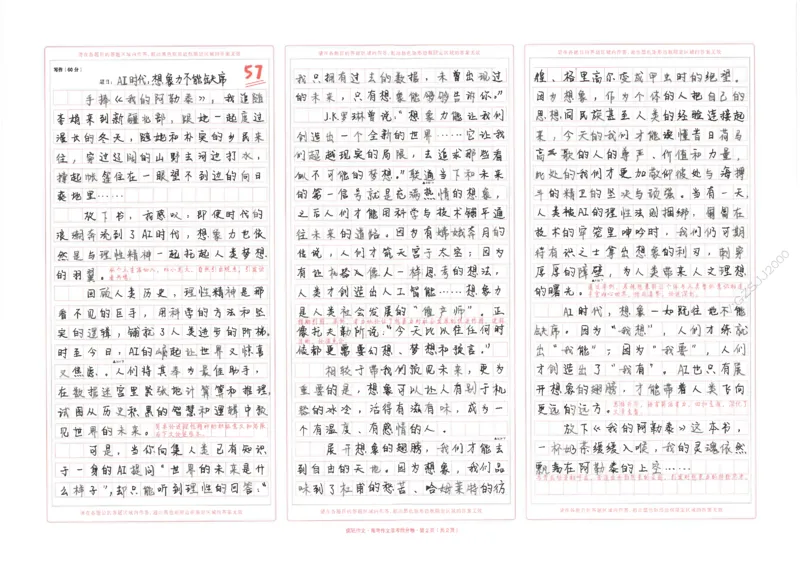 写作(60分)
57
题目：AI时代，想象力不能缺席
手捧《我的阿勒泰》，我追随
李娟来到新疆北部，跟她一起度过
漫长的冬天，随她和朴实的乡民来
往，穿过辽阔的山野去河边打水，
撑起帐篷住在一眼望不到边的向日
葵地里……
放下书，我感叹：即使时代的
浪潮奔流到了AI时代，想象力也依
然是与理性精神一起托起人类梦想
的羽翼。
回顾人类历史，理性精神是那
看不见的巨手，用科学的方法和坚
定的逻辑，铺就了人类进步的阶梯。
时至今日，AI的崛起让世界又惊喜
又焦虑。人们将其奉为最佳助手，
在数据迷宫里紧张地计算着和推理，
试图从历史积累的智慧和逻辑中教
见世界的未来。
可是，当你向集人类已有知识
于一身的AI提问“世界的未来是什
么样子”，却只能听到理性的回答：“
我只拥有过去的数据，未曾出现过
的未来，只有想象能够告诉你。”
J.K罗琳曾说，“想象力能让我们
创造出一个全新的世界……它让我
们超越现实的局限，去追求那些看
似不可能的梦想。”驶通当下和未来
的第一信号就是充满热情的想象，
之后人们才能用科学与技术铺平通
往未来的道路。因为有嫦娥奔月的
传说，人们才能飞天宫于太空；因为
有让机器人像人一样思考的想法，
人类才创造出人工智能……想象力
是人类社会发展的“催产师”，正
像托夫勒所说：“今天比以往任何时
候都更需要幻想、梦想和预言。”
相较于带我们预见未来，更为
重要的是，想象可以让人有别于机
器的冰冷，活得有滋有味，成为一
个有温度、有感情的人。
展开想象的翅膀，我们才能去
到自由的天地。因为想象，我们品
味到了杜甫的愁苦、哈姆莱特的彷
徨、格里高尔变成甲虫时的绝望。
因为想象，作为个体的人把自己的
思想同民族甚至人类的经验连接起
来，今天的我们才能读懂昔日荷马
高歌的人的尊严、价值和力量，
此处的我们才更加敬仰彼处与海搏
斗的精卫的坚决与顽强。当有一天，
人类被AI的理性法则捆绑，匍匐在
技术的穹笼里呻吟时，我们仍可期
待有识之士拿出想象的利刃，刺穿
厚厚的障壁，为人类带来人文理想
的曙光。
AI时代，想象一如既往地不能
缺席。因为“我想”，人们才练就
出“我能”；因为“我要”，人们
才创造出了“我有”。AI也只有展
开想象的翅膀，才能带着人类飞向
更远的远方。
放下《我的阿勒泰》这本书，
一杯奶茶缓缓入喉，我的灵魂依然
飘荡在阿勒泰的上空……